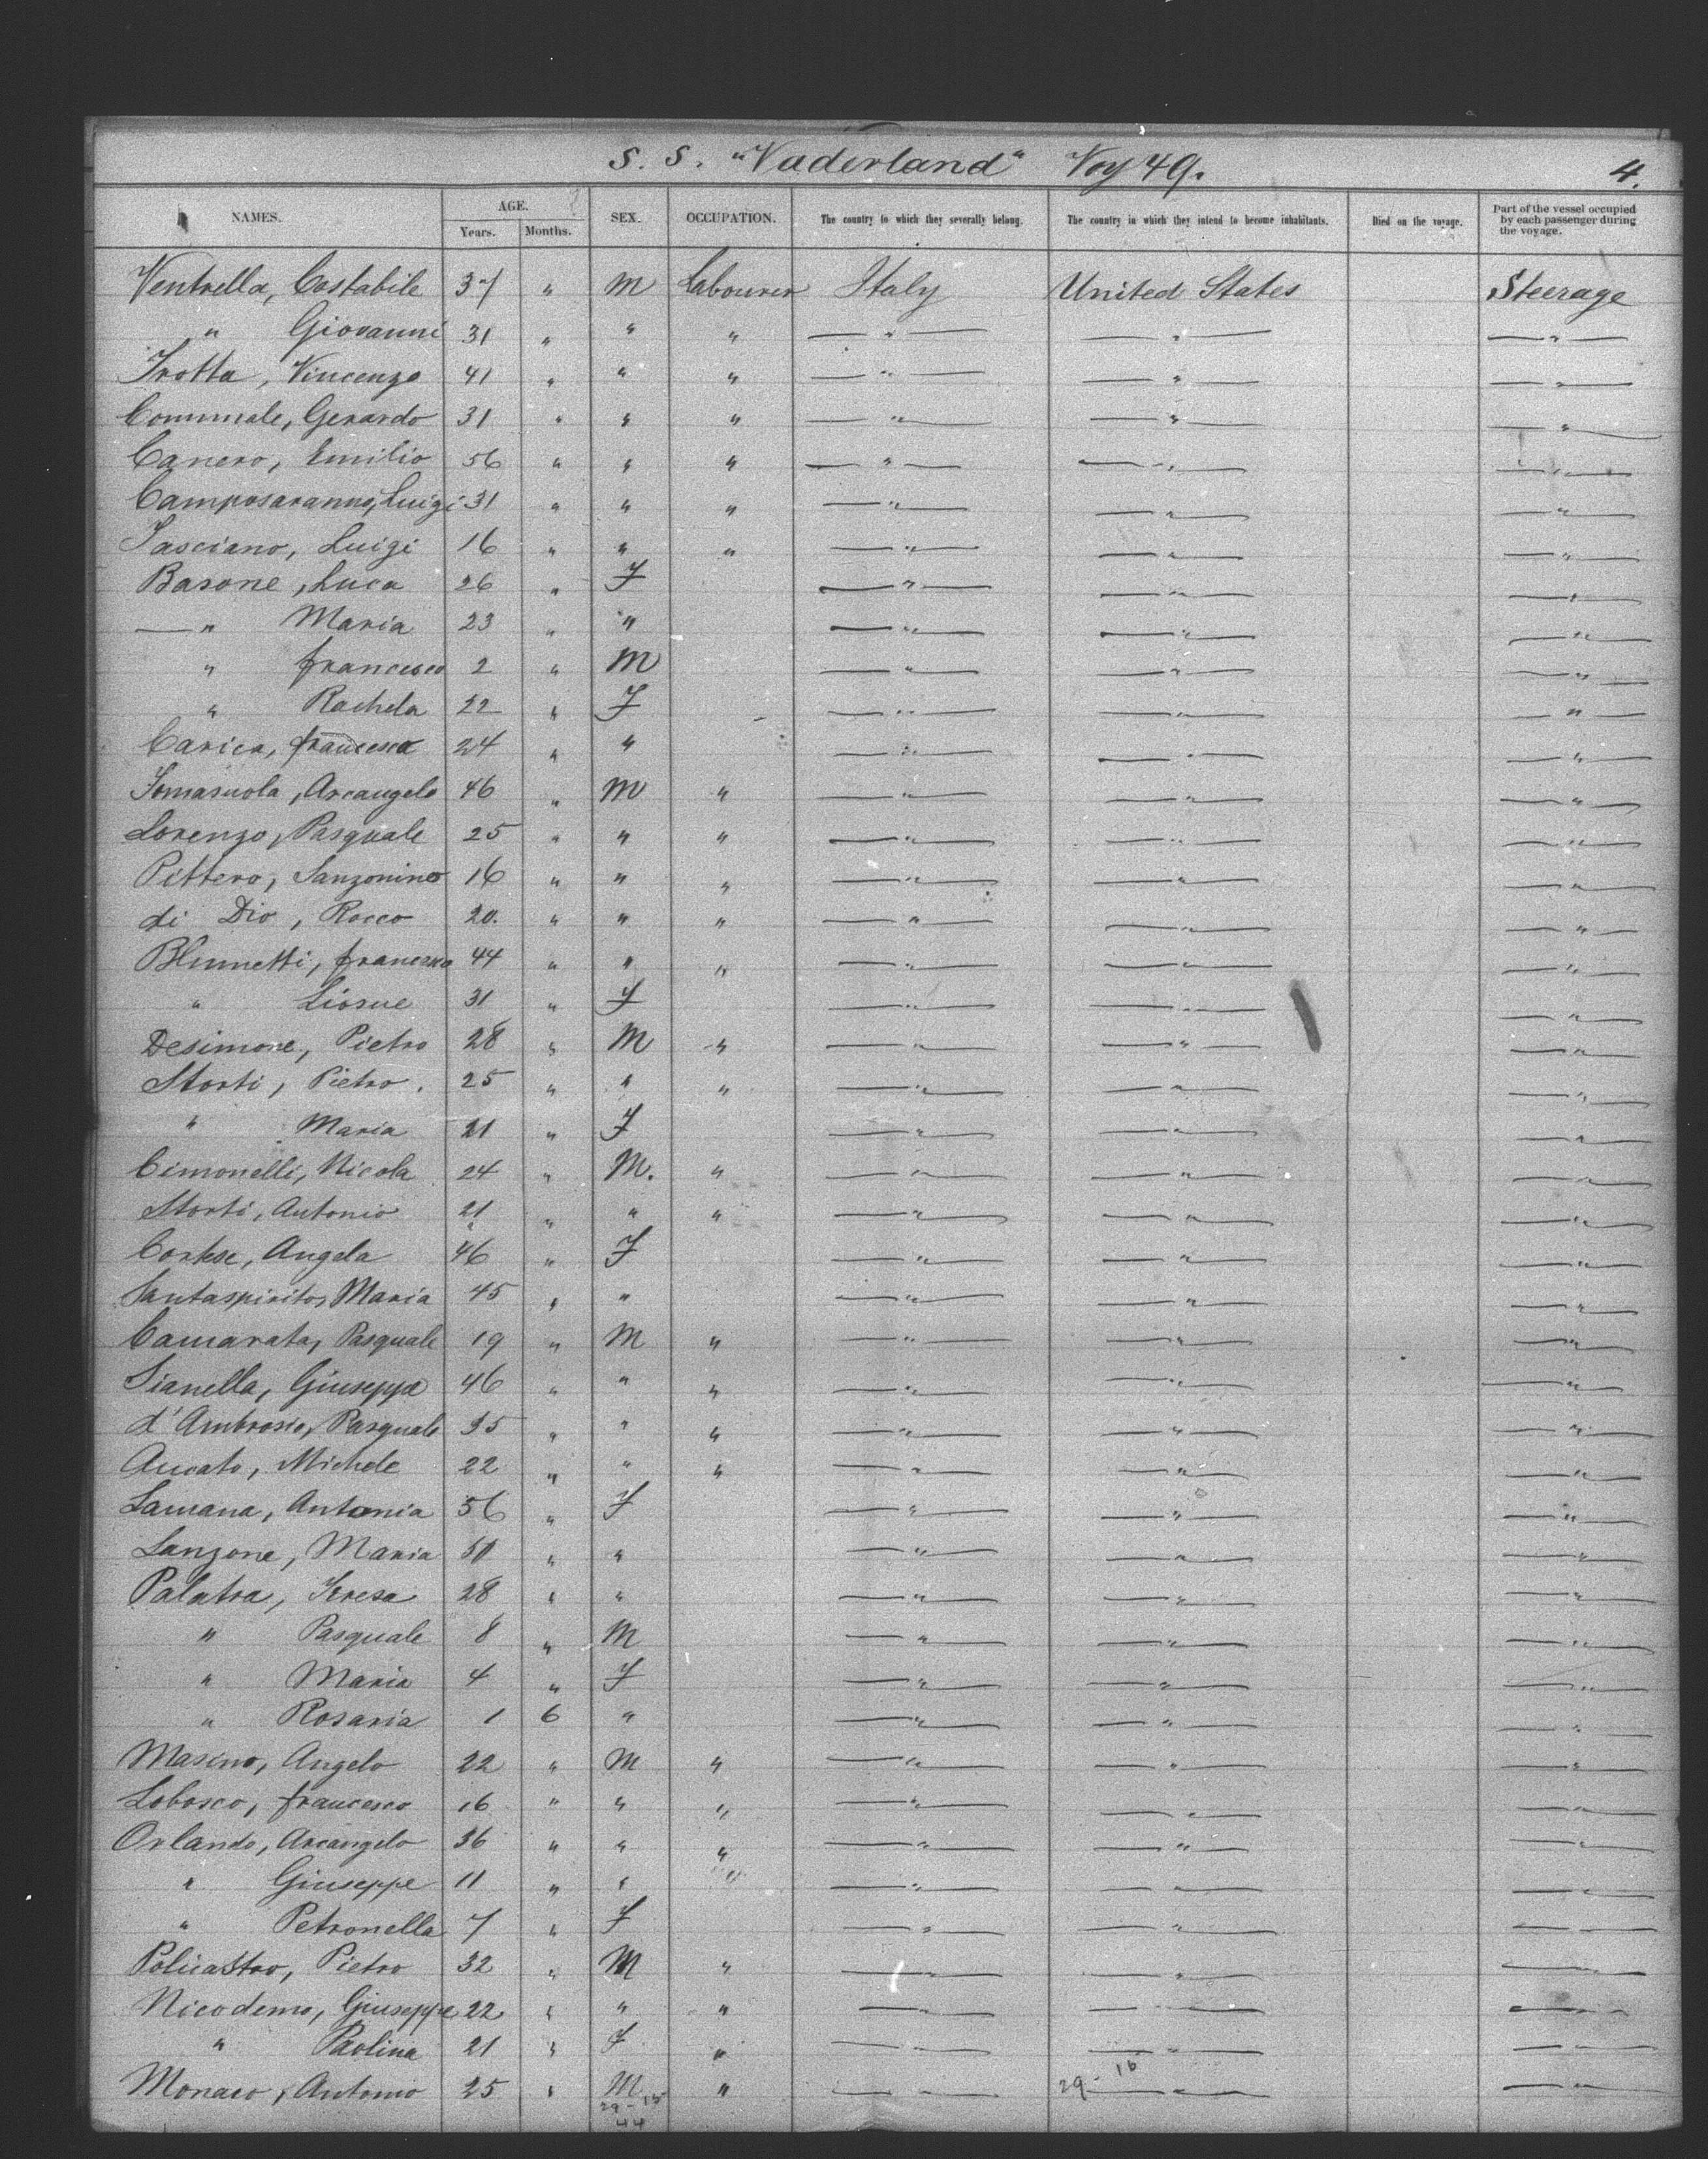 S. S. "Vaderland" Voy 49. 4.
NAMES. AGE. Years. Months. SEX. OCCUPATION. The country to which they severally belong. The country in which they intend to become inhabitants. Died on the voyage. Part of the vessel occupied by each passenger during the voyage.
Ventrella, Costabile 37 " M Labourer Italy United States Steerage
" Giovanni 31 " " " " " "
Trotta, Vincenzo 41 " " " " " "
Communale, Gerardo 31 " " " " " "
Canero, Emilio 56 " " " " " "
Camposaranno, Luigi 31 " " " " " "
Fasciano, Luigi 16 " " " " " "
Barone, Luca 26 " F " " "
" Maria 23 " " " " "
" Francesco 2 " M " " "
" Rachela 22 " F " " "
Carica, Francesca 24 " " " " "
Tomasuola, Arcangelo 46 " M " " " "
Lorenzo, Pasquale 25 " " " " " "
Pittero, Sanzonino 16 " " " " " "
di Dio, Rocco 20. " " " " " "
Blumetti, Francesco 44 " " " " " "
" Liosue 31 " F " " "
Desimone, Pietro 28 " M " " " "
Storti, Pietro. 25 " " " " " "
" Maria 21 " F " " "
Cimonelli, Nicola 24 " M. " " " "
Storti, Antonio 21 " " " " " "
Cortese, Angela 46 " F " " "
Santaspirito, Maria 45 " " " " "
Camarata, Pasquale 19 " M " " " "
Sianella, Giuseppa 46 " " " " " "
d'Ambrosio, Pasquale 35 " " " " " "
Aucato, Michele 22 " " " " " "
Lamana, Antonia 56 " F " " "
Lanzone, Maria 50 " " " " "
Palatra, Teresa 28 " " " " "
" Pasquale 8 " M " " "
" Maria 4 " F " " "
" Rosaria 1 6 " " " "
Masino, Angelo 22 " M " " " "
Lobosco, Francesco 16 " " " " " "
Orlando, Arcangelo 36 " " " " " "
" Giuseppe 11 " " " " " "
" Petronella 7 " F " " "
Policastro, Pietro 32 " M " " " "
Nicodemo, Giuseppe 22 " " " " " "
" Paolina 21 " F " " " "
Monaco, Antonio 25 " M " " " "
29-15 29-16
44